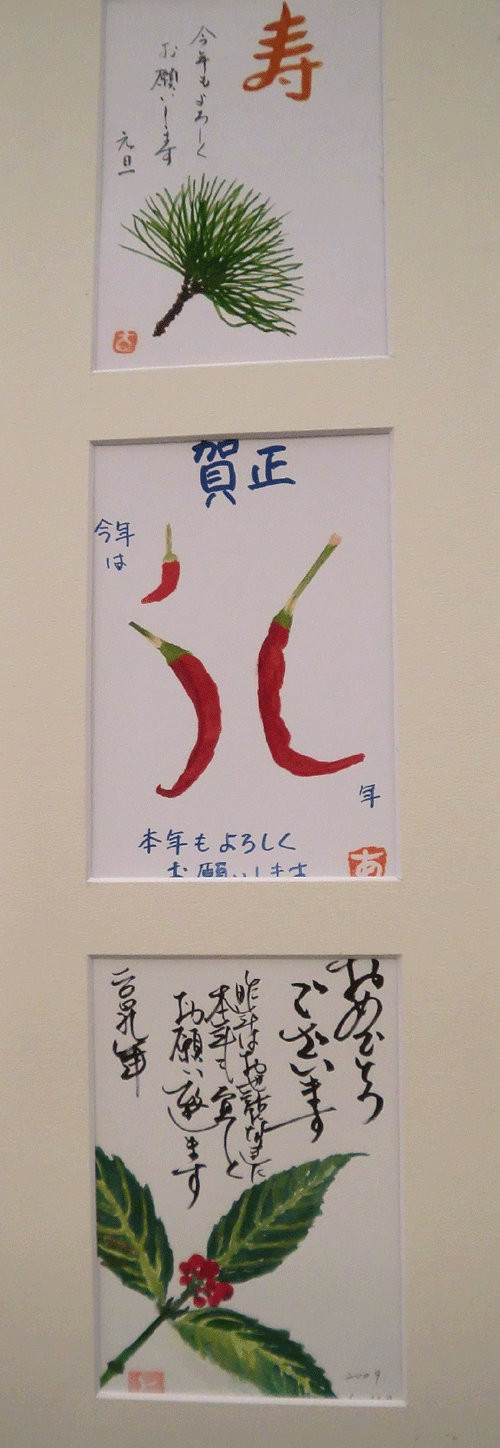 寿
今年もよろしく
お願いします
元旦
賀正
今年
は
年
本年もよろしく
お願いします
あ
おめでとう
ございます
昨年はお世話になりました
本年も宜しく
お願い致します
二〇〇九年
2009